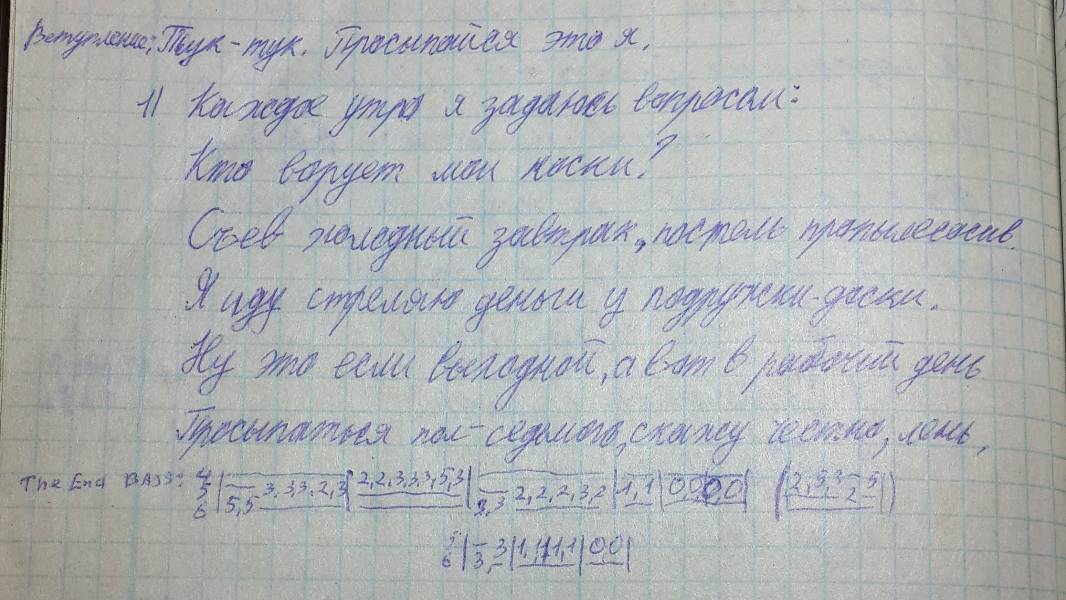 Вступление: Тук-тук. Просыпайся это я.
1) Каждое утро я задаюсь вопросом:
Кто ворует мои носки?
Съев холодный завтрак, постель пропылесосив.
Я иду стреляю деньги у подружки-доски.
Ну это если выходной, а вот в рабочий день
Просыпаться пол-седьмого, скажу честно, лень,
The End BASS: 4 5 6 | 5,5 3,3,3,2,3 | 2,2,3,3,3,5,3 | 3,3 2,2,2,3,2 | 1,1 |
5 6 | 3, 3 | 1,1,1,1 | 0 0 |